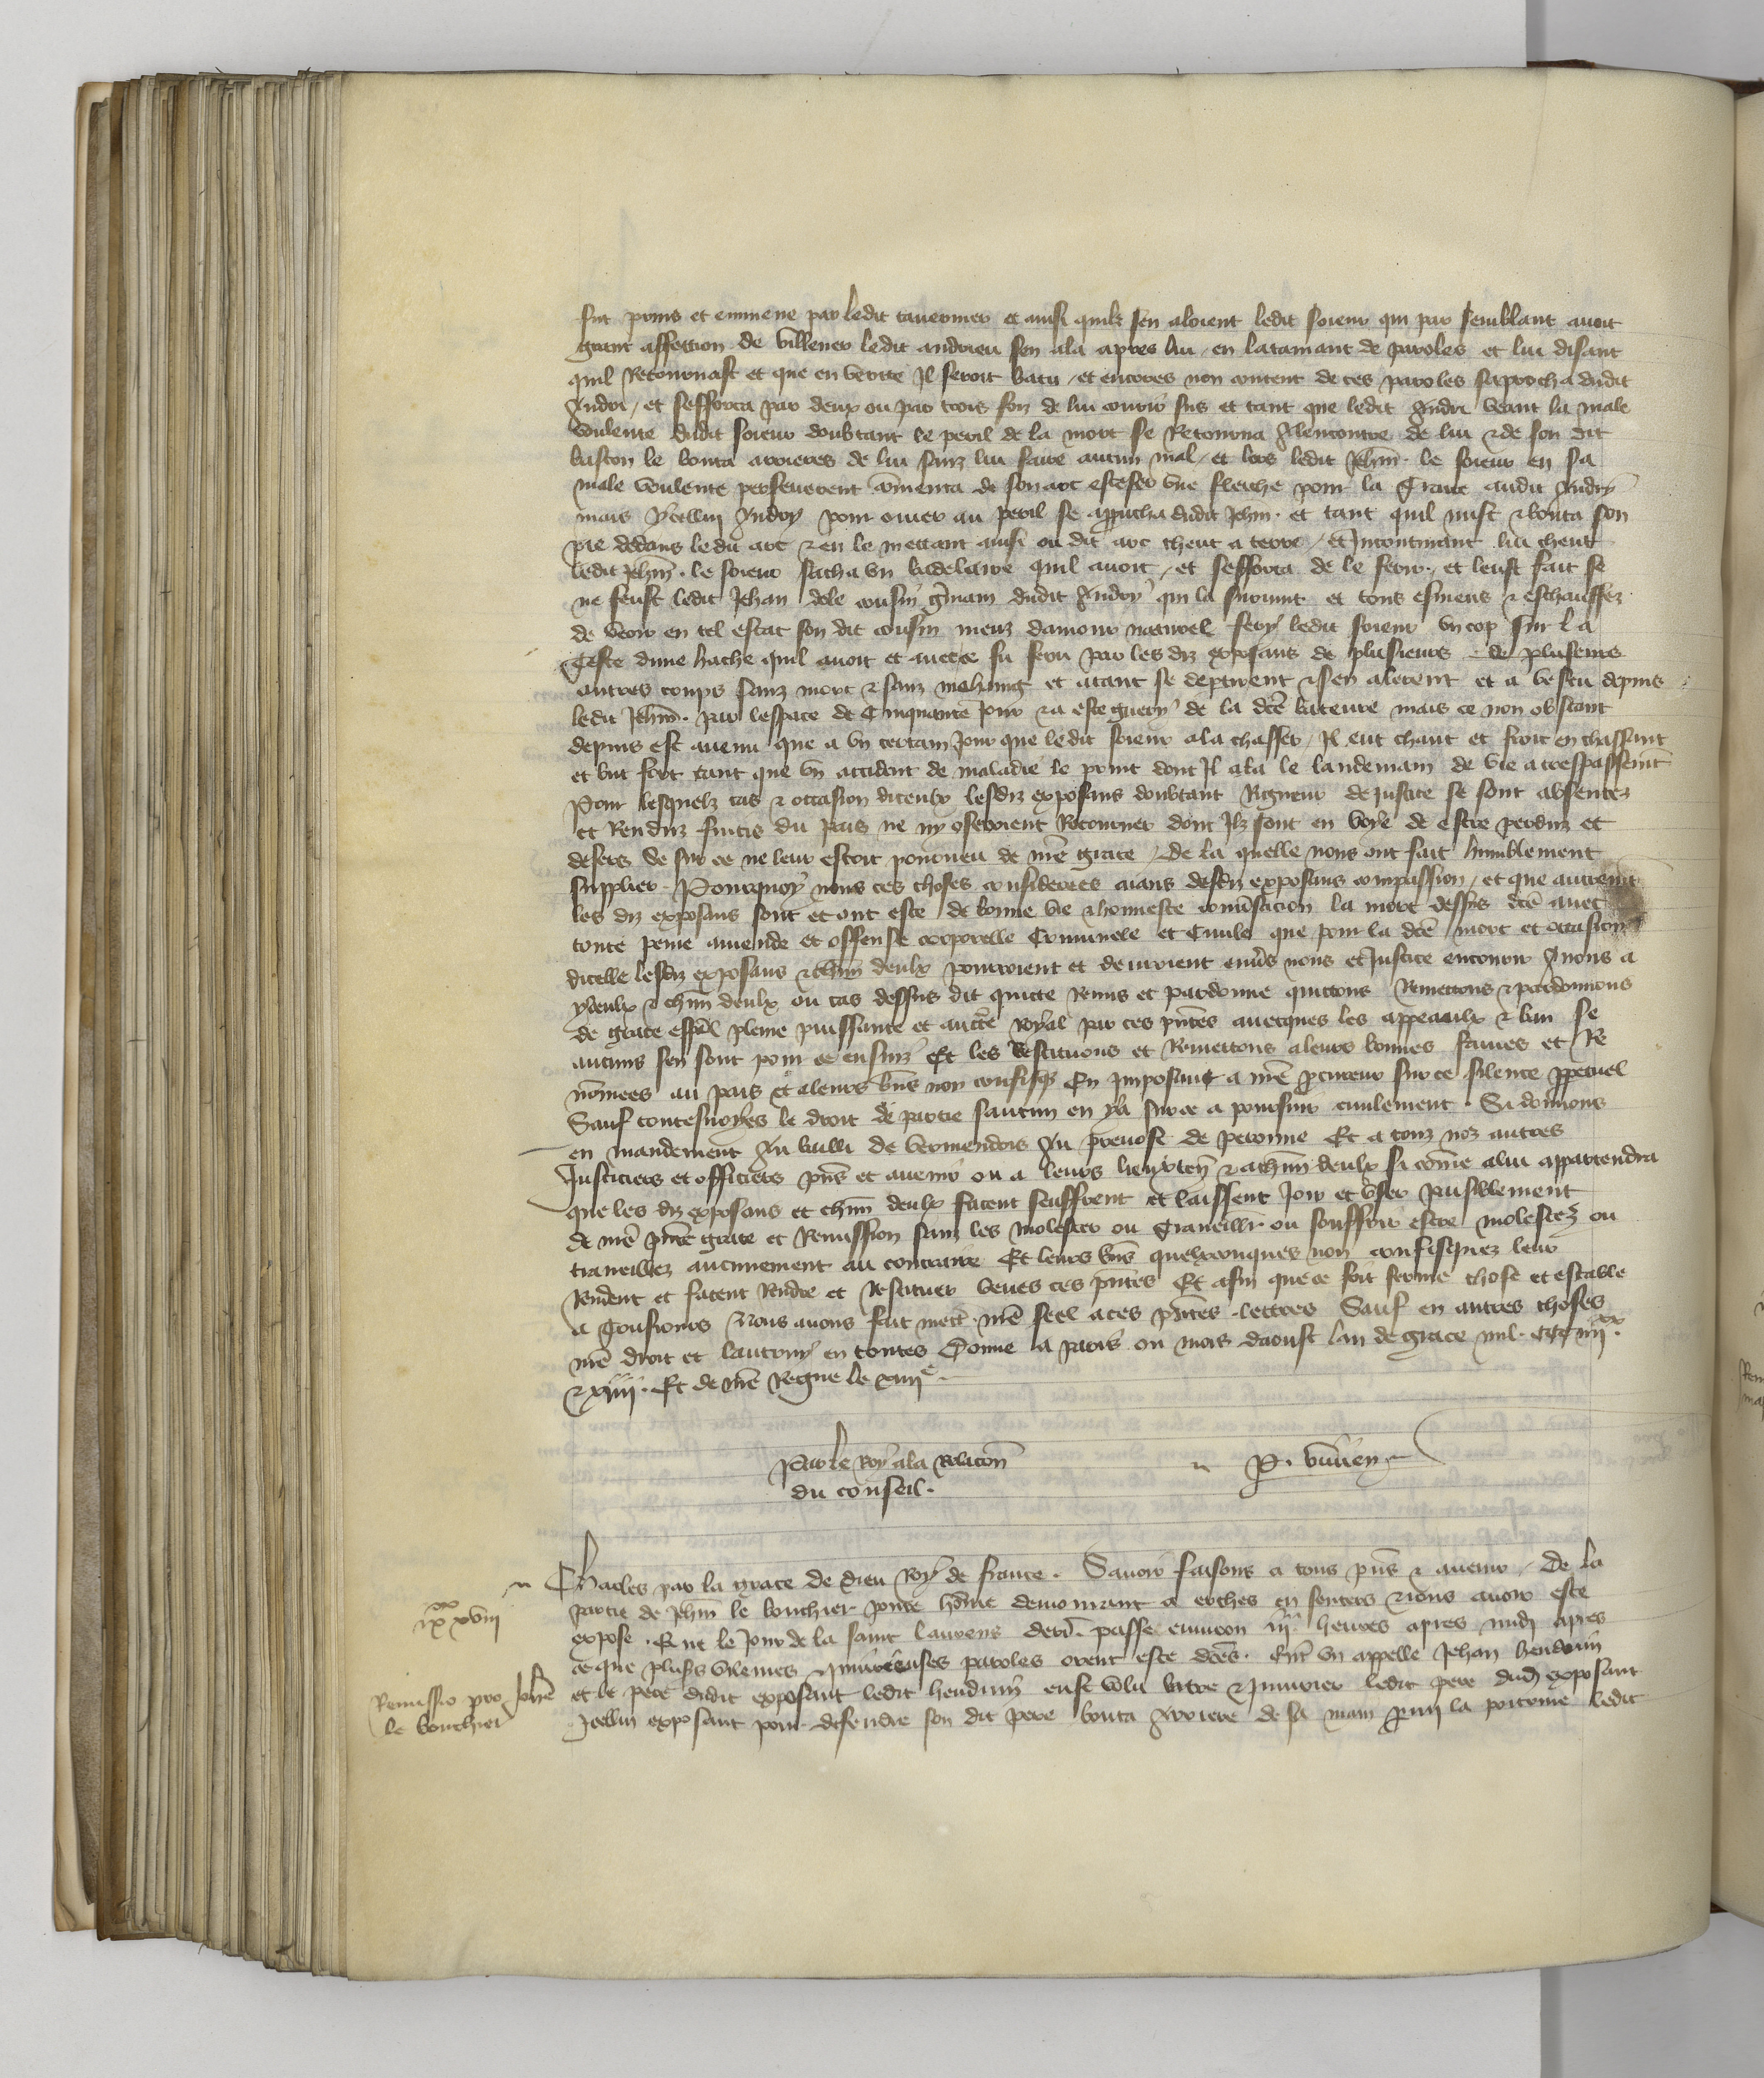 fut prins et emmene par ledit tavernier et ainsi quilz sen aloient ledit soieur qui par semblant avoit
grant affection de villener ledit andrieu sen ala apres lui / en latainant de paroles et lui disant
quil Retournast et que en verite Il seroit batu / et encores non content de ces paroles saprocha dudit
Andri / et sefforca par deux ou par trois foiz de lui courir sus et tant que ledit Andri veant la male
voulente dudit soieur doubtant le peril de la mort se Retourna Alencontre de lui & de son dit
baston le bouta arrieres de lui sanz lui faire aucun mal / et lors ledit Jehn . le soieur en sa
male voulente perseverent comenca de son arc
mais ycellui Andry pour obvier au peril se aproucha dudit Jehn . et tant quil mist & bouta son
pie dedens ledit arc & en le mettant ainsi ou dit arc cheut a terre / Et Incontinant lui cheut
ledit Jehn . le soieur sacha un badelaire quil avoit / et sefforca de le ferir . et leust fait se
ne feust ledit Jehan cousin germain dudit Andry qui la survint et tous esmeus & eschauffez
de veoir en tel estat son dit cousin meuz damour naturel fery ledit soieur un cop sur la
Teste dune hache quil avoit et avecce fu feru par les diz exposans de plusieurs de plusieurs
autres coups sanz mort & sanz mehaing et atant se departirent & sen alerent et a vescu depuis
ledit Jehn . par lespace de Cinquante Jour & a este guery de la dce bateure mais ce non obstant
depuis est avenu que a un certain Jour que ledit soieur ala chasser / Il eut chaut et froit en chassant
et but fort tant que un accident de maladie le print dont Il ala le landemain de vie a trespassemt
Pour lesquelz cas & occasion diceulx lesdiz exposans doubtant Rigueur de justice se sont absentez
et Renduz fuitis du pais ne ny oseroient Retourner dont Ilz sont en voye de estre perduz et
desers Se sur ce ne leur estoit pourveu de nre grace / de la quelle nous ont fait humblement
supplier . Pourquoy nous ces choses considerees aians desdiz exposans compassion / et que autremt
les diz exposans sont et ont este de bonne vie & honneste conversacion la mort dessus dce avec
toute peine amende et offense corporelle Criminele et Civile que pour la dce mort et occasion
dicelle lesdiz exposans & chun deulx pourroient et devroient envers nous et Justice encourir Avons a
yceulx & chun deulx ou cas dessus dit quicte Remis et pardonne quictons Remettons & pardonnons
de grace espal pleine puissance et aucte royal par ces pntes avecques les appeaulx & ban se
aucuns sen sont pour ce ensuiz Et les Restituons et Remettons a leurs bonnes fames et Re
nomees au pais et a leurs biens non confisqz En Imposant a nre procureur sur ce silence ppetuel
Sauf toutesvoyes le droit de partie saucun en ya sur ce a poursuir civilement . Si donnons
en mandement Au bailli de vermendois Au prevost de peronne Et a touz noz autres
Justiciers et officiers pns et avenir ou a leurs lieuxten & a chun deulx si come a lui appartendra
que les diz exposans et chun deulx facent seuffrent et laissent Joir et user paisiblement
de nre pnte grace et Remission sanz les molester ou Traveillr ou souffrir estre molestez ou
traveillez aucunement au contraire Et leurs bns quelxconques non confisquez leur
Rendent et facent Rendre et Restituer veues ces pntes Et afin que ce soit ferme chose et estable
a Tousiours Nous avons fait mett . nre seel a ces pntes lettres Sauf en autres choses
nre droit et lautruy en toutes Donne a paris ou mois daoust lan de grace mil . CCC iiiixx .
& xiiii . Et de nre Regne le xiiiie .
Par le Roy a la Relacon
du conseil .
Charles par la grace de dieu Roy de france . Savoir faisons a tous pns & avenir / De la
partie de Jehn le bouchier povre home demourant a erches en Nous avoir este
expose . Que le Jour de la saint laurens derr . passe environ iii heures apres midi apres
ce que pluss vilennes & Injurieuses paroles orent este dces . Entr un appelle Jehan
et le pere dudit exposant ledit eust volu batre & Injurier ledit pere dud exposant
Icellui exposant pour defendre son dit pere bouta Arriere de sa main parmi la poictrine ledit
ixxx xviii
Remissio pro Johne
le bouchier